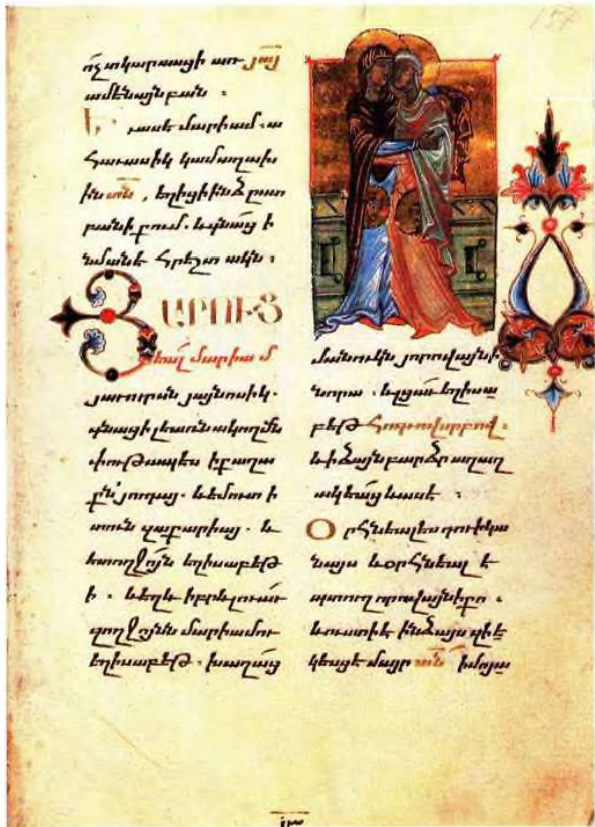 ոչ տկարասցի առ յայ
ամենայն բան։
Եւ ասէ մարիամ. ա
հաւասիկ կամ աղախ
ին տն, եղիցի ինձ ըստ
բանի քում. և գնաց ի
նմանէ հրեշտակն։
Յարուց
եալ մարիամ
յաւուրսն յայնոսիկ.
գնաց ի լեառնակողմն
փութապէս ի քաղա
քն յուդայ. և եմուտ ի
տուն զաքարիայ. և
ետ ողջոյն եղիսաբեթ
ի. և եղև իբրև լուաւ
զողջոյնն մարիամու
եղիսաբեթ. խաղաց
մանուկն յորովայնի
նորա. և լցաւ եղիսա
բեթ հոգւով սրբով.
և ի ձայն բարձր աղաղ
ակեաց և ասէ։
Օրհնեալ ես դու ի կա
նայս և օրհնեալ է
պտուղ որովայնի քո.
և ուստի է ինձ այս զի ե
կեսցէ մայր տն իմոյ ա